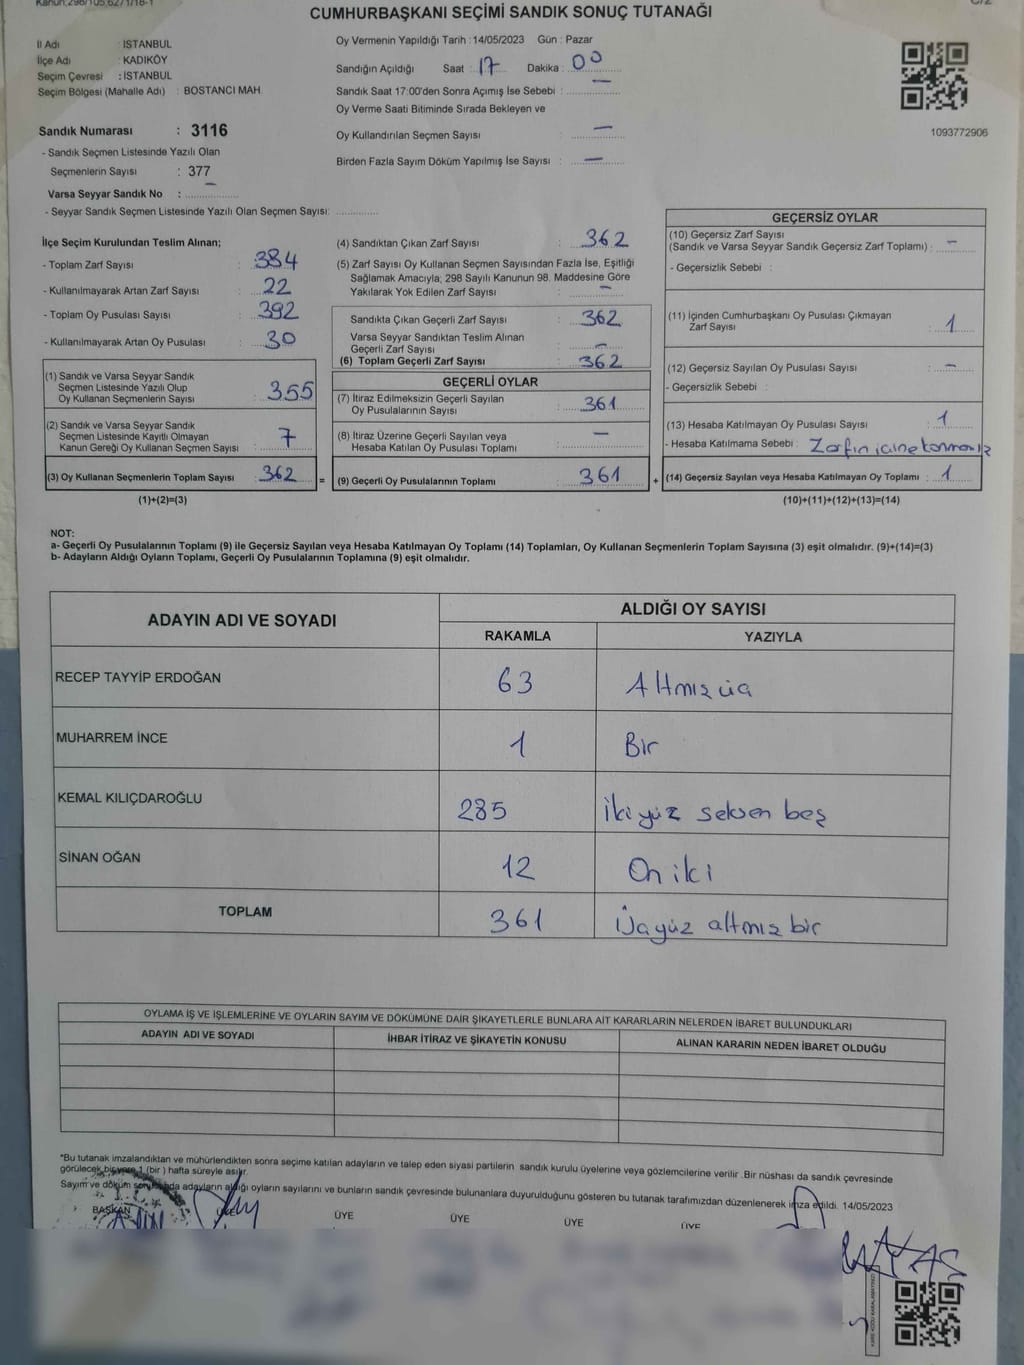 CUMHURBAŞKANI SEÇİMİ SANDIK SONUÇ TUTANAĞI
C/2
İl Adı : İSTANBUL
İlçe Adı : KADIKÖY
Seçim Çevresi : İSTANBUL
Seçim Bölgesi (Mahalle Adı) : BOSTANCI MAH.
Sandık Numarası : 3116
- Sandık Seçmen Listesinde Yazılı Olan
Seçmenlerin Sayısı : 377
Varsa Seyyar Sandık No : –
- Seyyar Sandık Seçmen Listesinde Yazılı Olan Seçmen Sayısı:
Oy Vermenin Yapıldığı Tarih : 14/05/2023 Gün : Pazar
Sandığın Açıldığı Saat : 17 Dakika : 00
Sandık Saat 17:00'den Sonra Açımış İse Sebebi : –
Oy Verme Saati Bitiminde Sırada Bekleyen ve
Oy Kullandırılan Seçmen Sayısı : –
Birden Fazla Sayım Döküm Yapılmış İse Sayısı : –
1093772906
İlçe Seçim Kurulundan Teslim Alınan;
- Toplam Zarf Sayısı : 384
- Kullanılmayarak Artan Zarf Sayısı : 22
- Toplam Oy Pusulası Sayısı : 392
- Kullanılmayarak Artan Oy Pusulası : 30
(1) Sandık ve Varsa Seyyar Sandık
Seçmen Listesinde Yazılı Olup
Oy Kullanan Seçmenlerin Sayısı : 355
(2) Sandık ve Varsa Seyyar Sandık
Seçmen Listesinde Kayıtlı Olmayan
Kanun Gereği Oy Kullanan Seçmen Sayısı : 7
(3) Oy Kullanan Seçmenlerin Toplam Sayısı : 362
(1)+(2)=(3)
=
(4) Sandıktan Çıkan Zarf Sayısı : 362
(5) Zarf Sayısı Oy Kullanan Seçmen Sayısından Fazla İse, Eşitliği
Sağlamak Amacıyla, 298 Sayılı Kanunun 98. Maddesine Göre
Yakılarak Yok Edilen Zarf Sayısı : –
Sandıkta Çıkan Geçerli Zarf Sayısı : 362
Varsa Seyyar Sandıktan Teslim Alınan
Geçerli Zarf Sayısı : –
(6) Toplam Geçerli Zarf Sayısı : 362
GEÇERLİ OYLAR
(7) İtiraz Edilmeksizin Geçerli Sayılan
Oy Pusulalarının Sayısı : 361
(8) İtiraz Üzerine Geçerli Sayılan veya
Hesaba Katılan Oy Pusulası Toplamı : –
(9) Geçerli Oy Pusulalarının Toplamı : 361
+
GEÇERSİZ OYLAR
(10) Geçersiz Zarf Sayısı
(Sandık ve Varsa Seyyar Sandık Geçersiz Zarf Toplamı) : –
- Geçersizlik Sebebi :
(11) İçinden Cumhurbaşkanı Oy Pusulası Çıkmayan
Zarf Sayısı : 1
(12) Geçersiz Sayılan Oy Pusulası Sayısı : –
- Geçersizlik Sebebi :
(13) Hesaba Katılmayan Oy Pusulası Sayısı : 1
- Hesaba Katılmama Sebebi : Zarfın içine
(14) Geçersiz Sayılan veya Hesaba Katılmayan Oy Toplamı : 1
(10)+(11)+(12)+(13)=(14)
NOT:
a- Geçerli Oy Pusulalarının Toplamı (9) ile Geçersiz Sayılan veya Hesaba Katılmayan Oy Toplamı (14) Toplamları, Oy Kullanan Seçmenlerin Toplam Sayısına (3) eşit olmalıdır. (9)+(14)=(3)
b- Adayların Aldığı Oyların Toplamı, Geçerli Oy Pusulalarının Toplamına (9) eşit olmalıdır.
ADAYIN ADI VE SOYADI
ALDIĞI OY SAYISI
RAKAMLA YAZIYLA
RECEP TAYYİP ERDOĞAN 63 Altmışüç
MUHARREM İNCE 1 Bir
KEMAL KILIÇDAROĞLU 285 İkiyüz seksen beş
SİNAN OĞAN 12 On iki
TOPLAM 361 Üçyüz altmış bir
OYLAMA İŞ VE İŞLEMLERİNE VE OYLARIN SAYIM VE DÖKÜMÜNE DAİR ŞİKAYETLERLE BUNLARA AİT KARARLARIN NELERDEN İBARET BULUNDUKLARI
ADAYIN ADI VE SOYADI İHBAR İTİRAZ VE ŞİKAYETİN KONUSU ALINAN KARARIN NEDEN İBARET OLDUĞU
*Bu tutanak imzalandıktan ve mühürlendikten sonra seçime katılan adayların ve talep eden siyasi partilerin sandık kurulu üyelerine veya gözlemcilerine verilir. Bir nüshası da sandık çevresinde
görülecek bir yere 1 (bir) hafta süreyle asılır.
Sayım ve döküm sonucunda adayların aldığı oyların sayılarını ve bunların sandık çevresinde bulunanlara duyurulduğunu gösteren bu tutanak tarafımızdan düzenlenerek imza edildi. 14/05/2023
BAŞKAN ÜYE ÜYE ÜYE ÜYE ÜYE